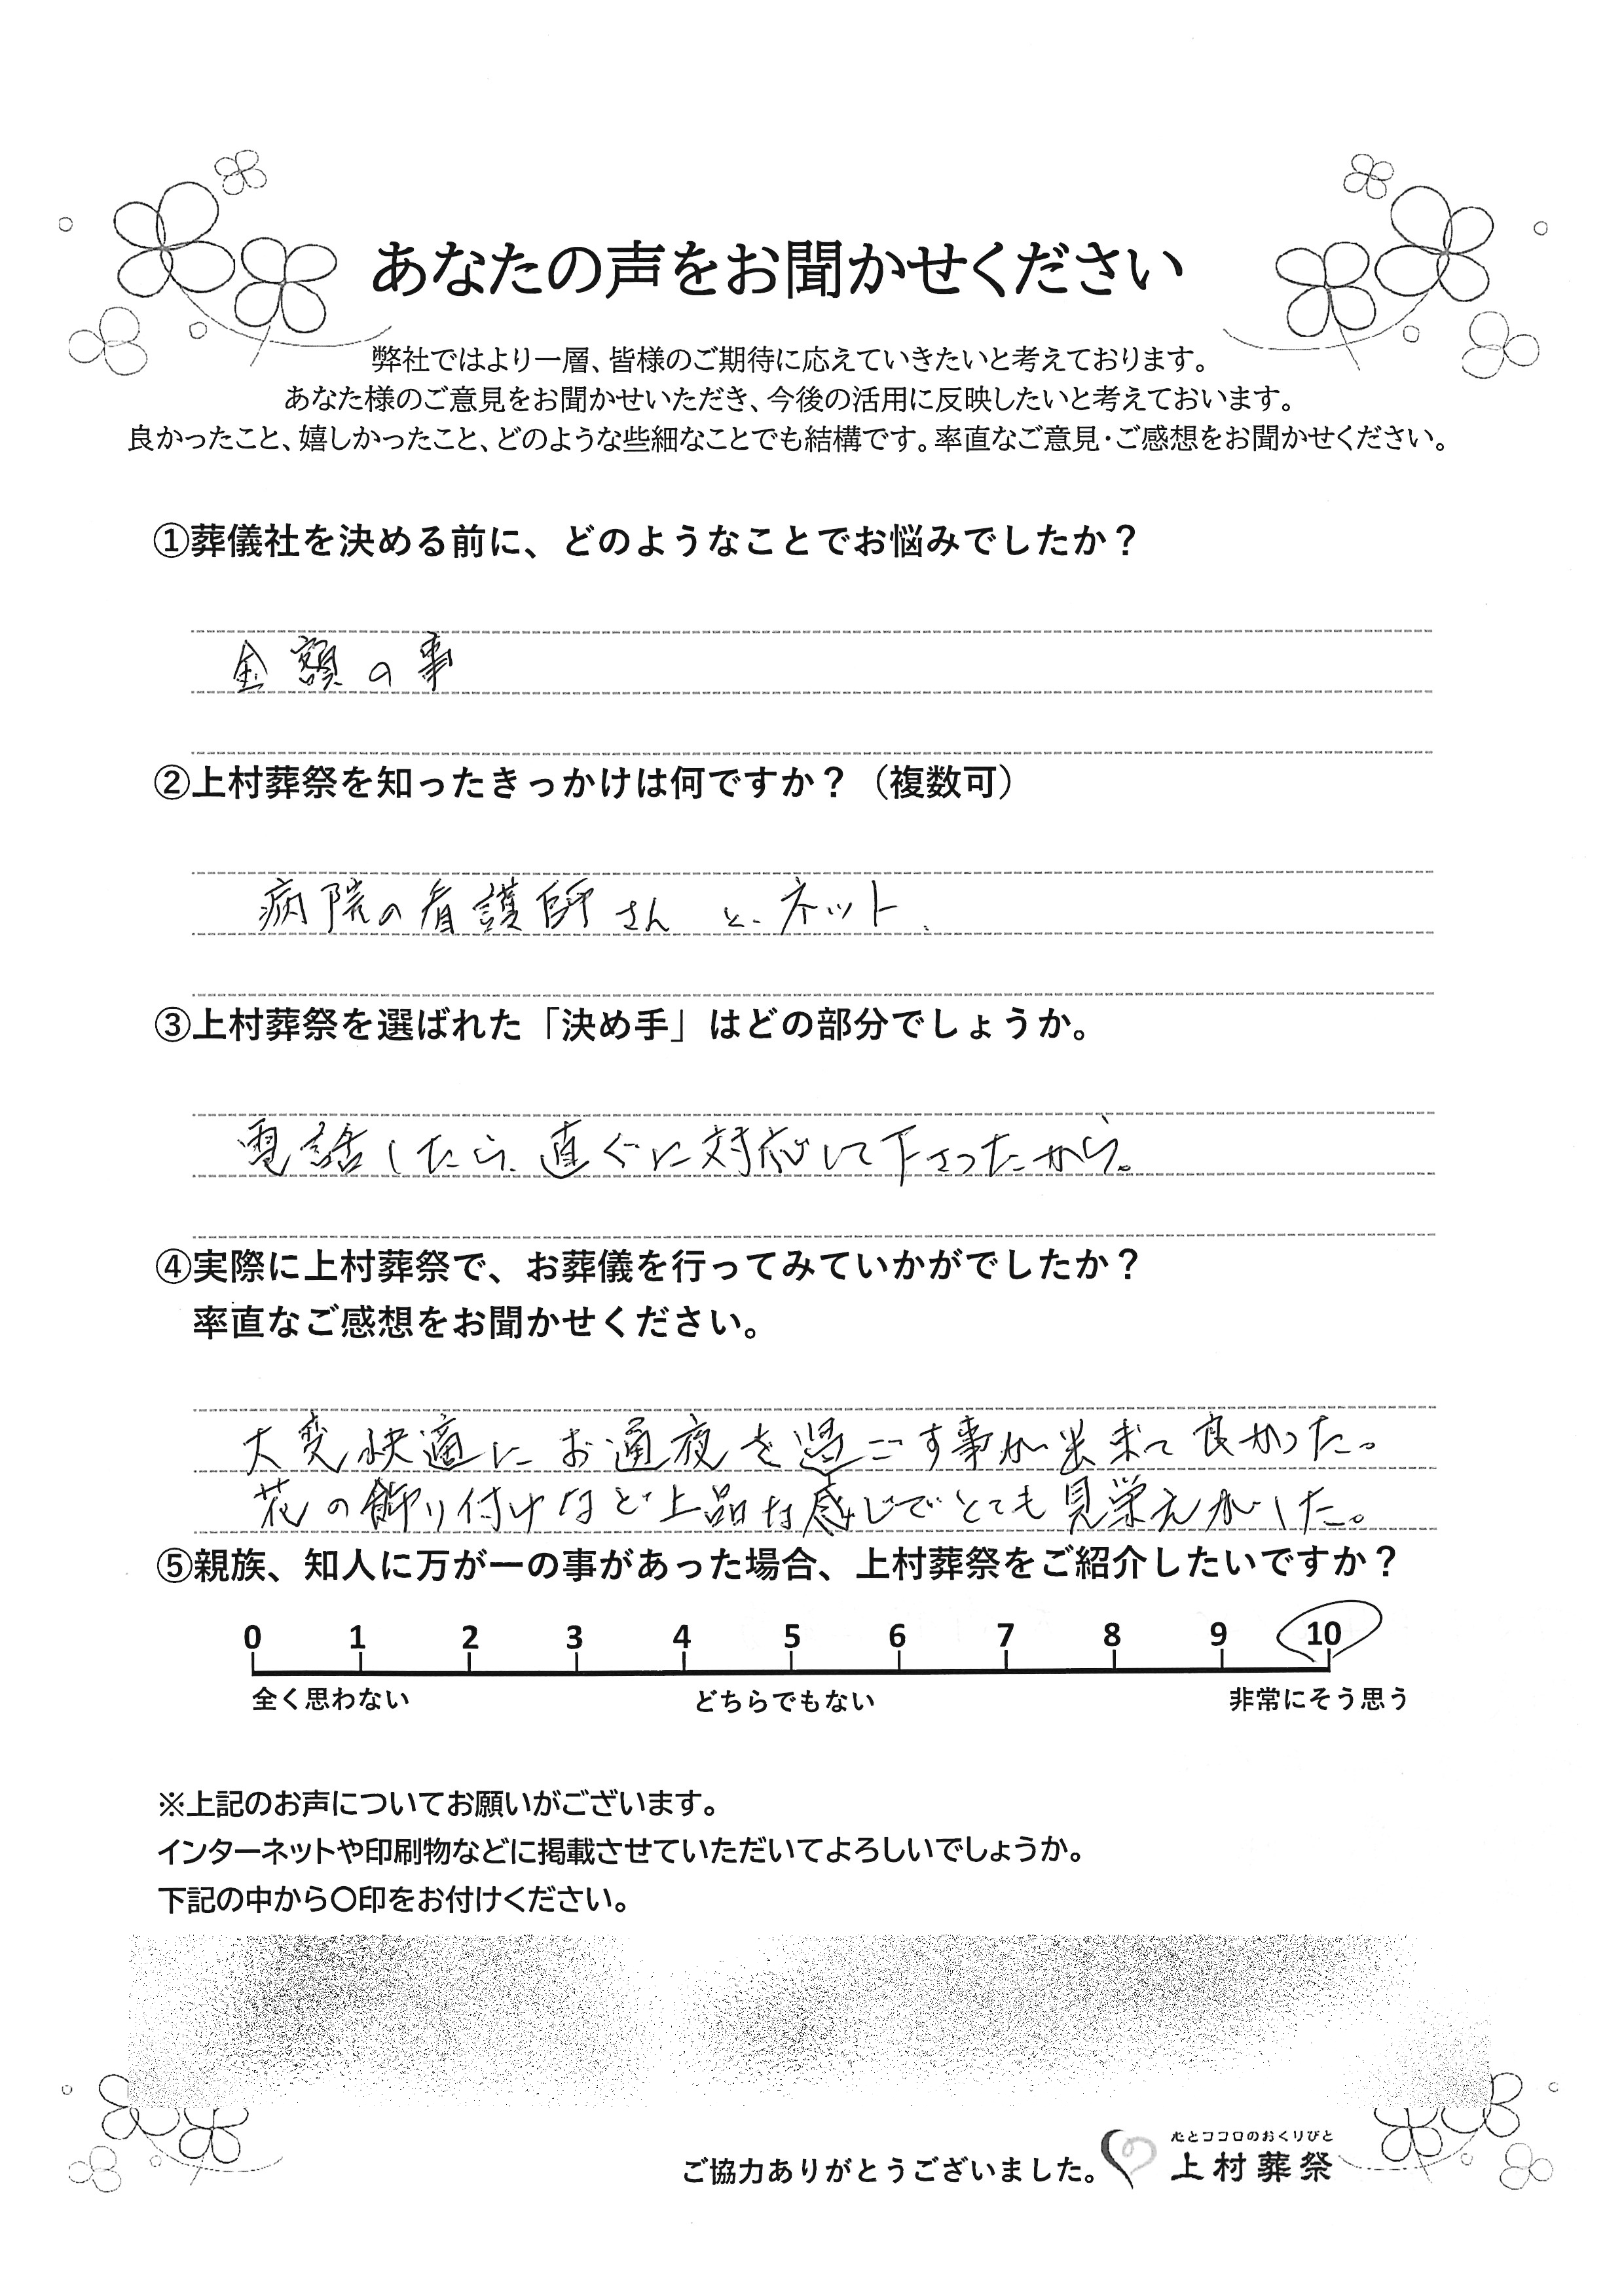 あなたの声をお聞かせください
弊社ではより一層、皆様のご期待に応えていきたいと考えております。
あなた様のご意見をお聞かせいただき、今後の活用に反映したいと考えておいます。
良かったこと、嬉しかったこと、どのような些細なことでも結構です。率直なご意見・ご感想をお聞かせください。
①葬儀社を決める前に、どのようなことでお悩みでしたか？
金額の事
②上村葬祭を知ったきっかけは何ですか？（複数可）
病院の看護師さん と、ネット、
③上村葬祭を選ばれた「決め手」はどの部分でしょうか。
電話したら、直ぐに対応して下さったから。
④実際に上村葬祭で、お葬儀を行ってみていかがでしたか？
率直なご感想をお聞かせください。
大変快適に お通夜を過ごす事が出来て良かった。
花の飾り付けなど上品な感じでとても見栄えがした。
⑤親族、知人に万が一の事があった場合、上村葬祭をご紹介したいですか？
0 1 2 3 4 5 6 7 8 9 10
全く思わない どちらでもない 非常にそう思う
※上記のお声についてお願いがございます。
インターネットや印刷物などに掲載させていただいてよろしいでしょうか。
下記の中から〇印をお付けください。
心とココロのおくりびと
ご協力ありがとうございました。 上村葬祭